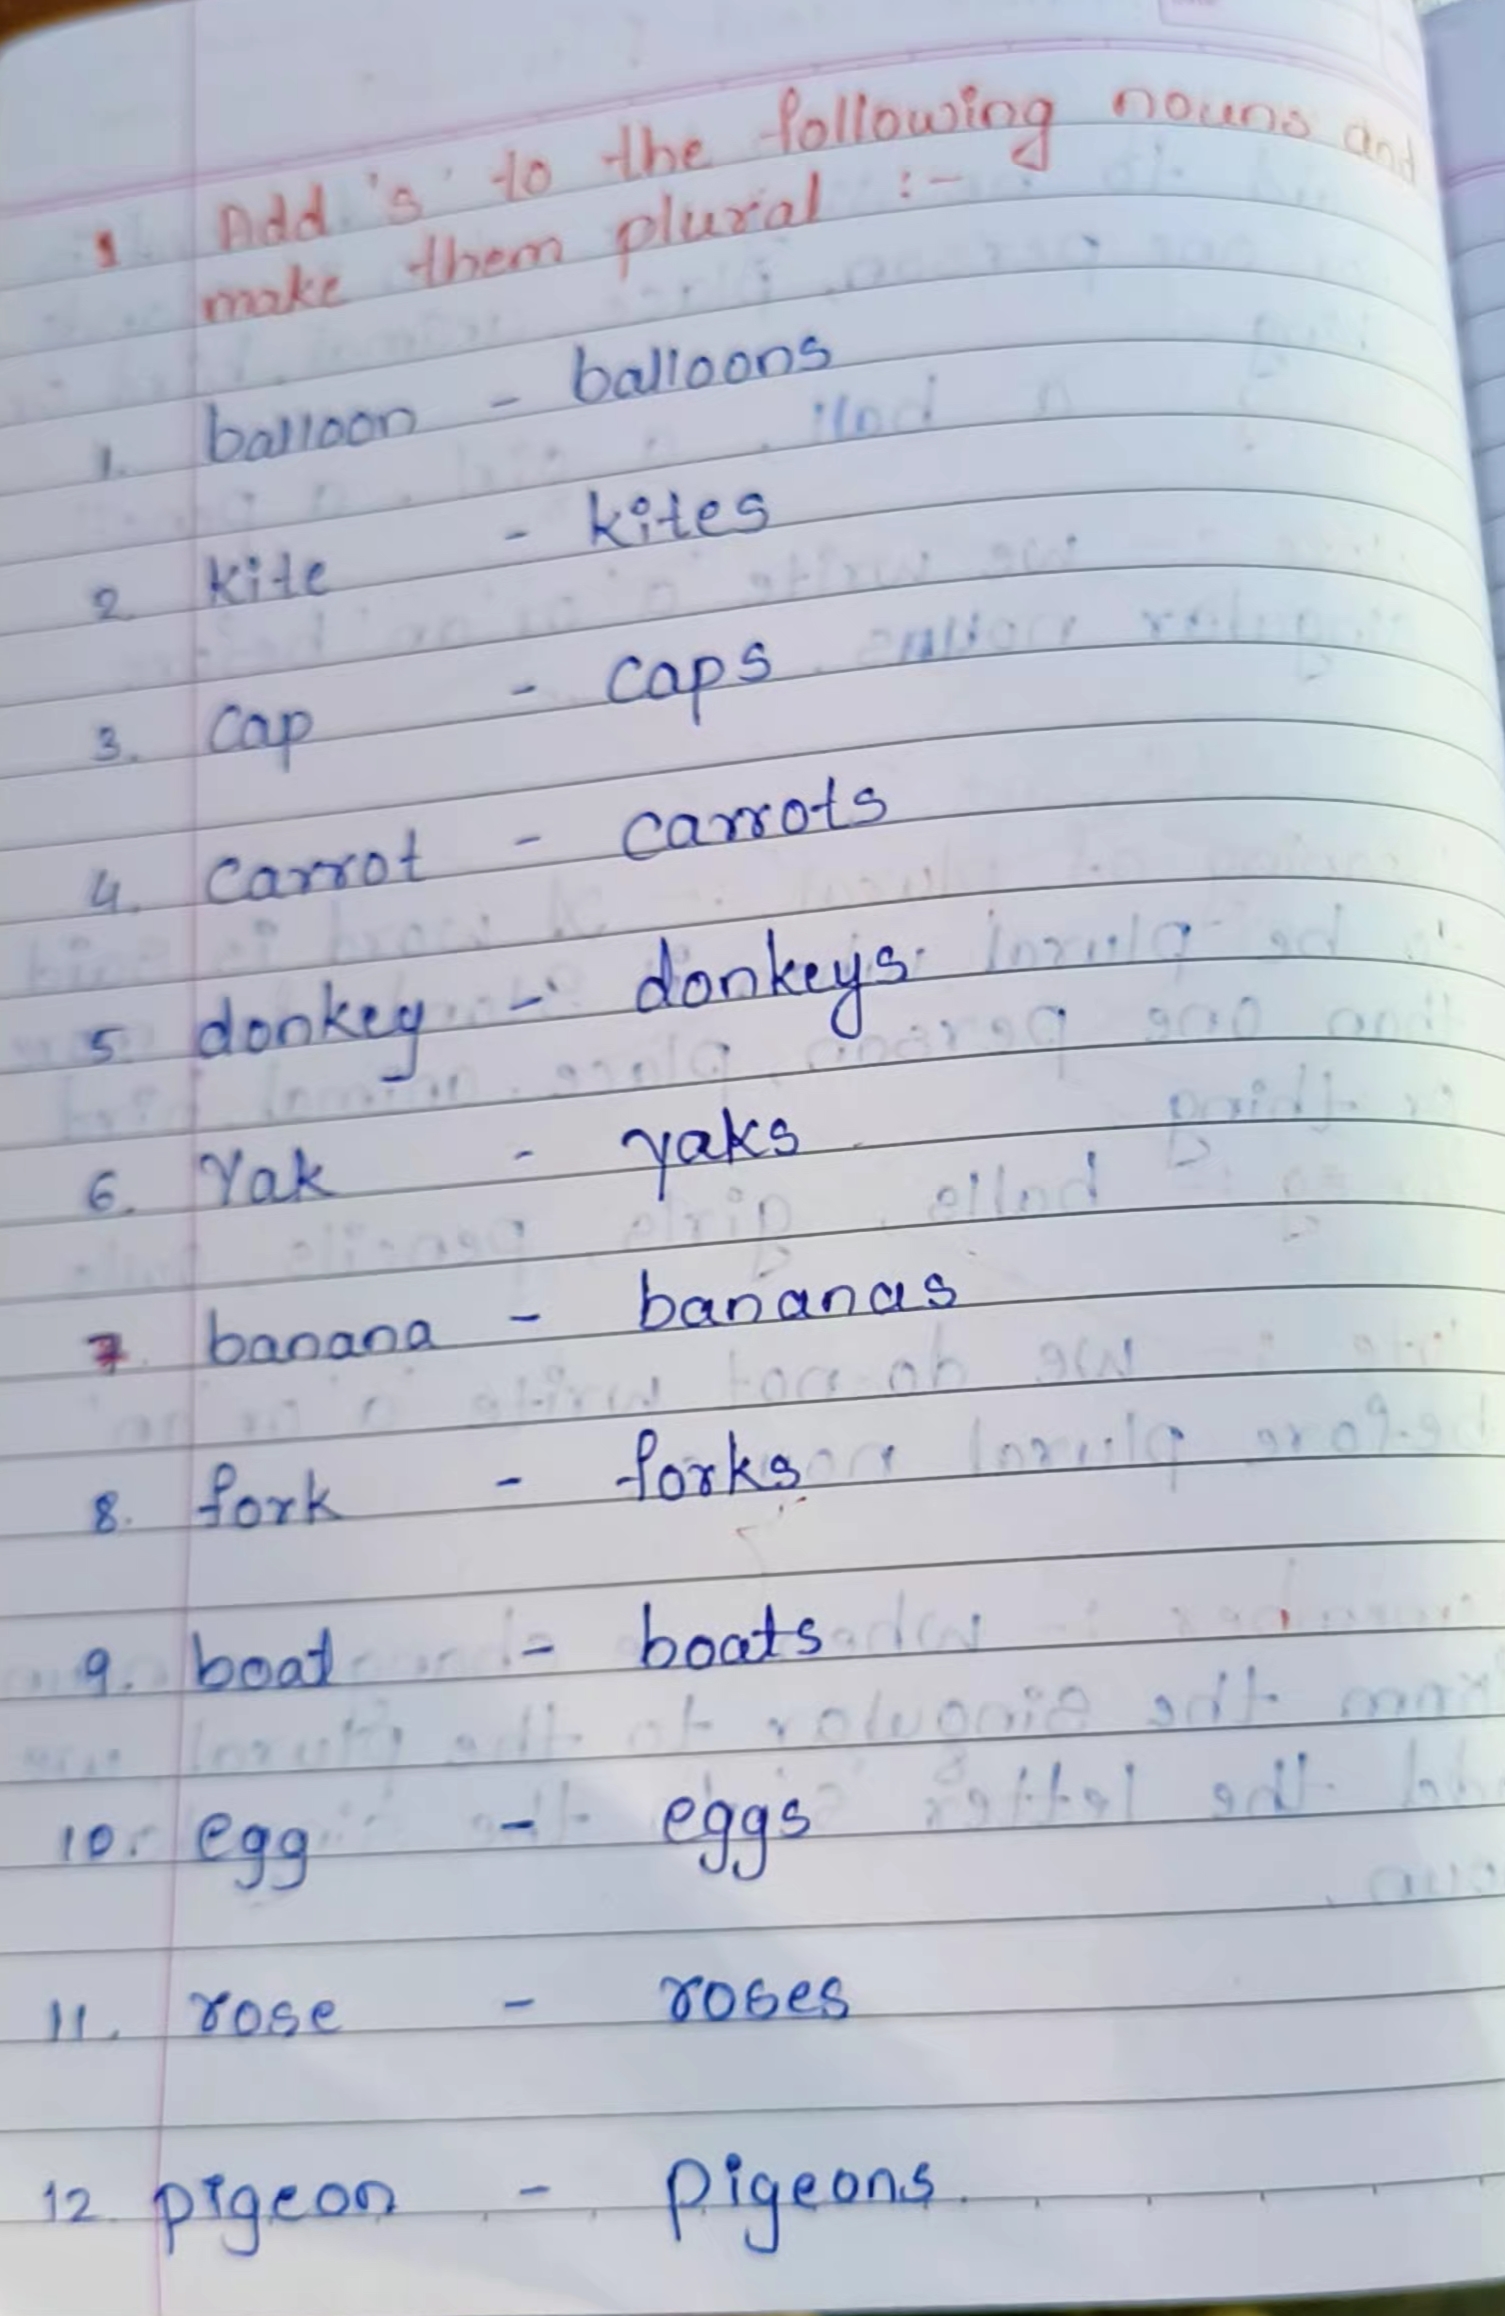 1 Add 's' to the following nouns and
make them plural :-
1. balloon - balloons
2 kite - kites
3. cap - caps
4. carrot - carrots
5. donkey - donkeys
6. Yak - yaks
7. banana - bananas
8. fork - forks
9. boat - boats
10. egg - eggs
11. rose - roses
12. pigeon - pigeons.